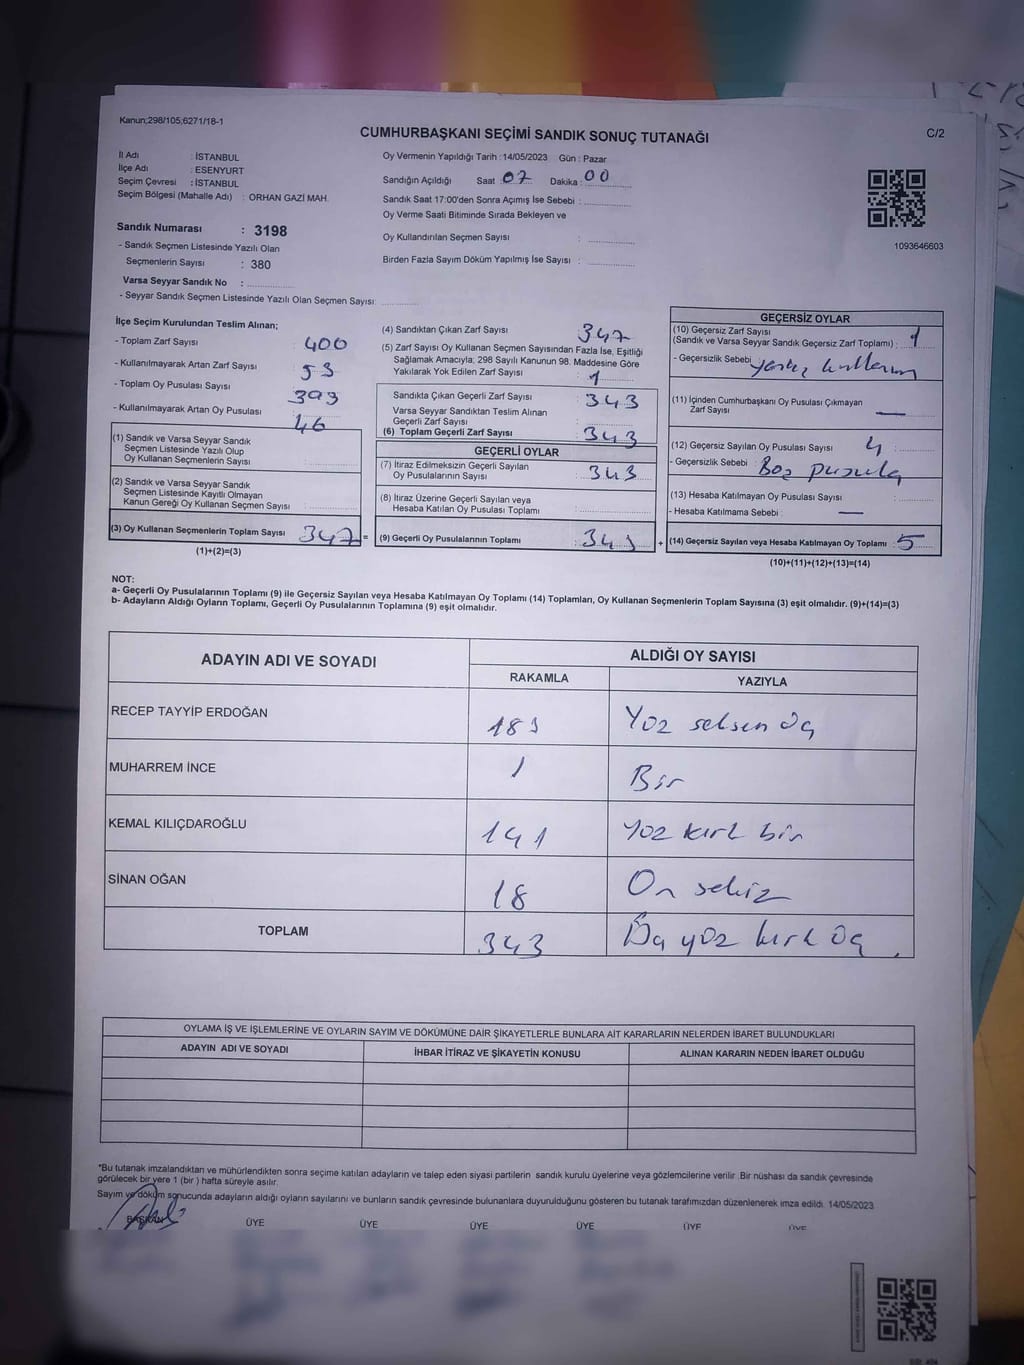 Kanun;298/105,6271/18-1
CUMHURBAŞKANI SEÇİMİ SANDIK SONUÇ TUTANAĞI
C/2
İl Adı : İSTANBUL
İlçe Adı : ESENYURT
Seçim Çevresi : İSTANBUL
Seçim Bölgesi (Mahalle Adı) : ORHAN GAZİ MAH.
Oy Vermenin Yapıldığı Tarih :14/05/2023 Gün : Pazar
Sandığın Açıldığı Saat 07 Dakika : 00
Sandık Saat 17:00'den Sonra Açımış İse Sebebi :
Oy Verme Saati Bitiminde Sırada Bekleyen ve
Oy Kullandırılan Seçmen Sayısı :
Birden Fazla Sayım Döküm Yapılmış İse Sayısı :
1093646603
Sandık Numarası : 3198
- Sandık Seçmen Listesinde Yazılı Olan
Seçmenlerin Sayısı : 380
Varsa Seyyar Sandık No :
- Seyyar Sandık Seçmen Listesinde Yazılı Olan Seçmen Sayısı:
İlçe Seçim Kurulundan Teslim Alınan;
- Toplam Zarf Sayısı 400
- Kullanılmayarak Artan Zarf Sayısı 53
- Toplam Oy Pusulası Sayısı 393
- Kullanılmayarak Artan Oy Pusulası 46
(1) Sandık ve Varsa Seyyar Sandık
Seçmen Listesinde Yazılı Olup
Oy Kullanan Seçmenlerin Sayısı :
(2) Sandık ve Varsa Seyyar Sandık
Seçmen Listesinde Kayıtlı Olmayan
Kanun Gereği Oy Kullanan Seçmen Sayısı :
(3) Oy Kullanan Seçmenlerin Toplam Sayısı 347 =
(1)+(2)=(3)
(4) Sandıktan Çıkan Zarf Sayısı : 347
(5) Zarf Sayısı Oy Kullanan Seçmen Sayısından Fazla İse, Eşitliği
Sağlamak Amacıyla; 298 Sayılı Kanunun 98. Maddesine Göre
Yakılarak Yok Edilen Zarf Sayısı : 1
Sandıkta Çıkan Geçerli Zarf Sayısı : 343
Varsa Seyyar Sandıktan Teslim Alınan
Geçerli Zarf Sayısı :
(6) Toplam Geçerli Zarf Sayısı : 343
GEÇERLİ OYLAR
(7) İtiraz Edilmeksizin Geçerli Sayılan
Oy Pusulalarının Sayısı : 343
(8) İtiraz Üzerine Geçerli Sayılan veya
Hesaba Katılan Oy Pusulası Toplamı :
(9) Geçerli Oy Pusulalarının Toplamı : 343 +
GEÇERSİZ OYLAR
(10) Geçersiz Zarf Sayısı
(Sandık ve Varsa Seyyar Sandık Geçersiz Zarf Toplamı) : 1
- Geçersizlik Sebebi
(11) İçinden Cumhurbaşkanı Oy Pusulası Çıkmayan
Zarf Sayısı : —
(12) Geçersiz Sayılan Oy Pusulası Sayısı : 4
- Geçersizlik Sebebi : Boş pusula
(13) Hesaba Katılmayan Oy Pusulası Sayısı :
- Hesaba Katılmama Sebebi : —
(14) Geçersiz Sayılan veya Hesaba Katılmayan Oy Toplamı : 5
(10)+(11)+(12)+(13)=(14)
NOT:
a- Geçerli Oy Pusulalarının Toplamı (9) ile Geçersiz Sayılan veya Hesaba Katılmayan Oy Toplamı (14) Toplamları, Oy Kullanan Seçmenlerin Toplam Sayısına (3) eşit olmalıdır. (9)+(14)=(3)
b- Adayların Aldığı Oyların Toplamı, Geçerli Oy Pusulalarının Toplamına (9) eşit olmalıdır.
ADAYIN ADI VE SOYADI
ALDIĞI OY SAYISI
RAKAMLA YAZIYLA
RECEP TAYYİP ERDOĞAN 183 Yüz seksen üç
MUHARREM İNCE 1 Bir
KEMAL KILIÇDAROĞLU 141 Yüz kırk bir
SİNAN OĞAN 18 On sekiz
TOPLAM 343 Üç yüz kırk üç
OYLAMA İŞ VE İŞLEMLERİNE VE OYLARIN SAYIM VE DÖKÜMÜNE DAİR ŞİKAYETLERLE BUNLARA AİT KARARLARIN NELERDEN İBARET BULUNDUKLARI
ADAYIN ADI VE SOYADI İHBAR İTİRAZ VE ŞİKAYETİN KONUSU ALINAN KARARIN NEDEN İBARET OLDUĞU
*Bu tutanak imzalandıktan ve mühürlendikten sonra seçime katılan adayların ve talep eden siyasi partilerin sandık kurulu üyelerine veya gözlemcilerine verilir .Bir nüshası da sandık çevresinde
görülecek bir yere 1 (bir ) hafta süreyle asılır.
Sayım ve döküm sonucunda adayların aldığı oyların sayılarını ve bunların sandık çevresinde bulunanlara duyurulduğunu gösteren bu tutanak tarafımızdan düzenlenerek imza edildi. 14/05/2023
BAŞKAN ÜYE ÜYE ÜYE ÜYE ÜYE ÜYE